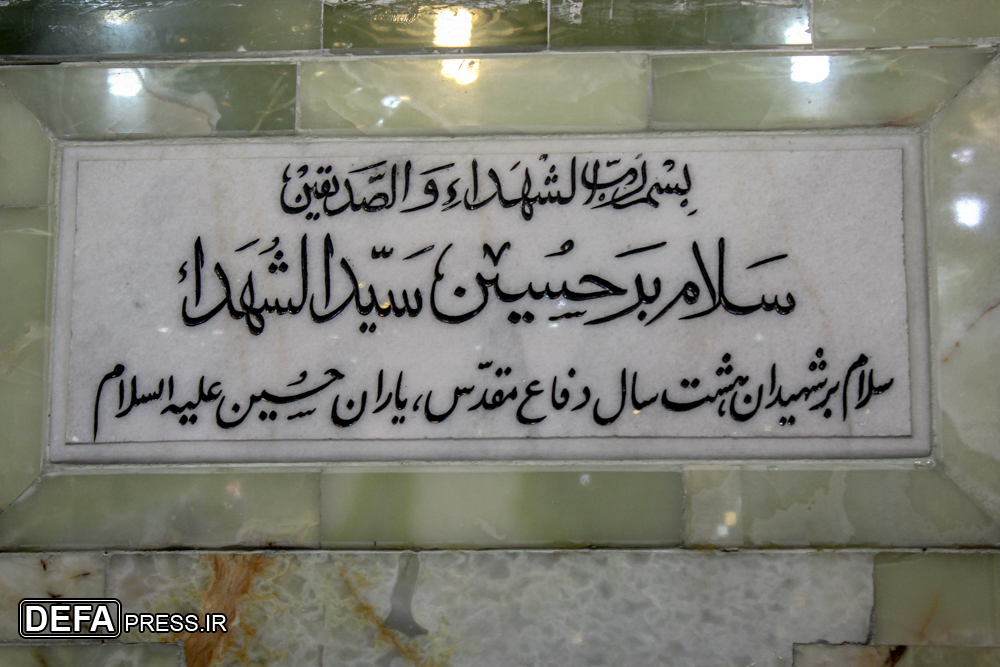 بسم رب الشهداء والصدیقین
سلام بر حسین سیدالشهداء
سلام بر شهیدان هشت سال دفاع مقدس، یاران حسین علیه السلام
DEFAPRESS.IR